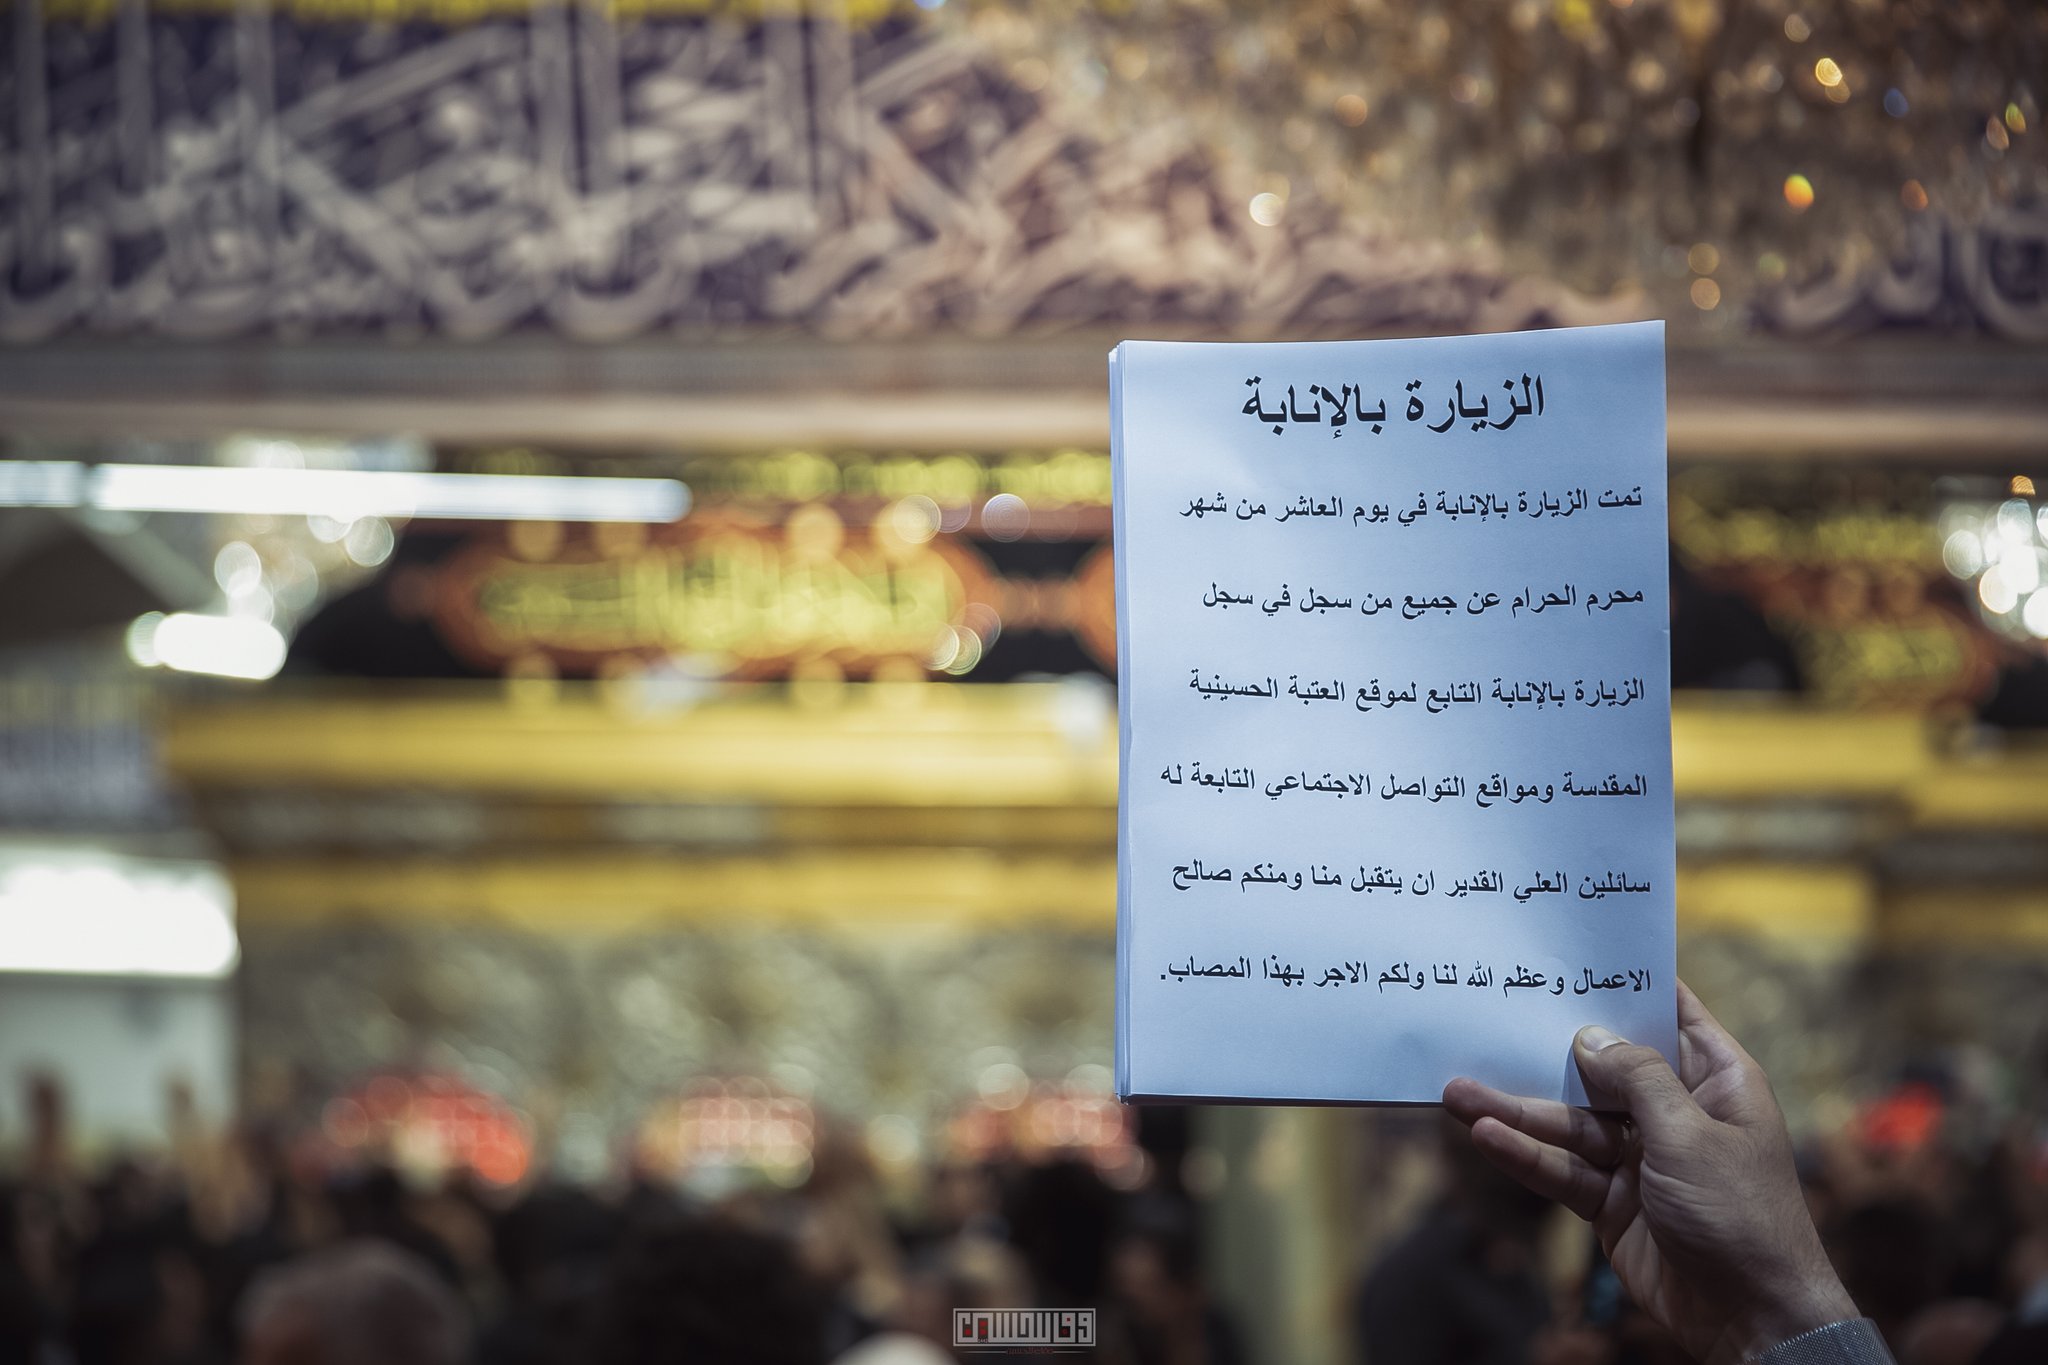 الزيارة بالإنابة
تمت الزيارة بالإنابة في يوم العاشر من شهر
محرم الحرام عن جميع من سجل في سجل
الزيارة بالإنابة التابع لموقع العتبة الحسينية
المقدسة ومواقع التواصل الاجتماعي التابعة له
سائلين العلي القدير ان يتقبل منا ومنكم صالح
الاعمال وعظم الله لنا ولكم الاجر بهذا المصاب.